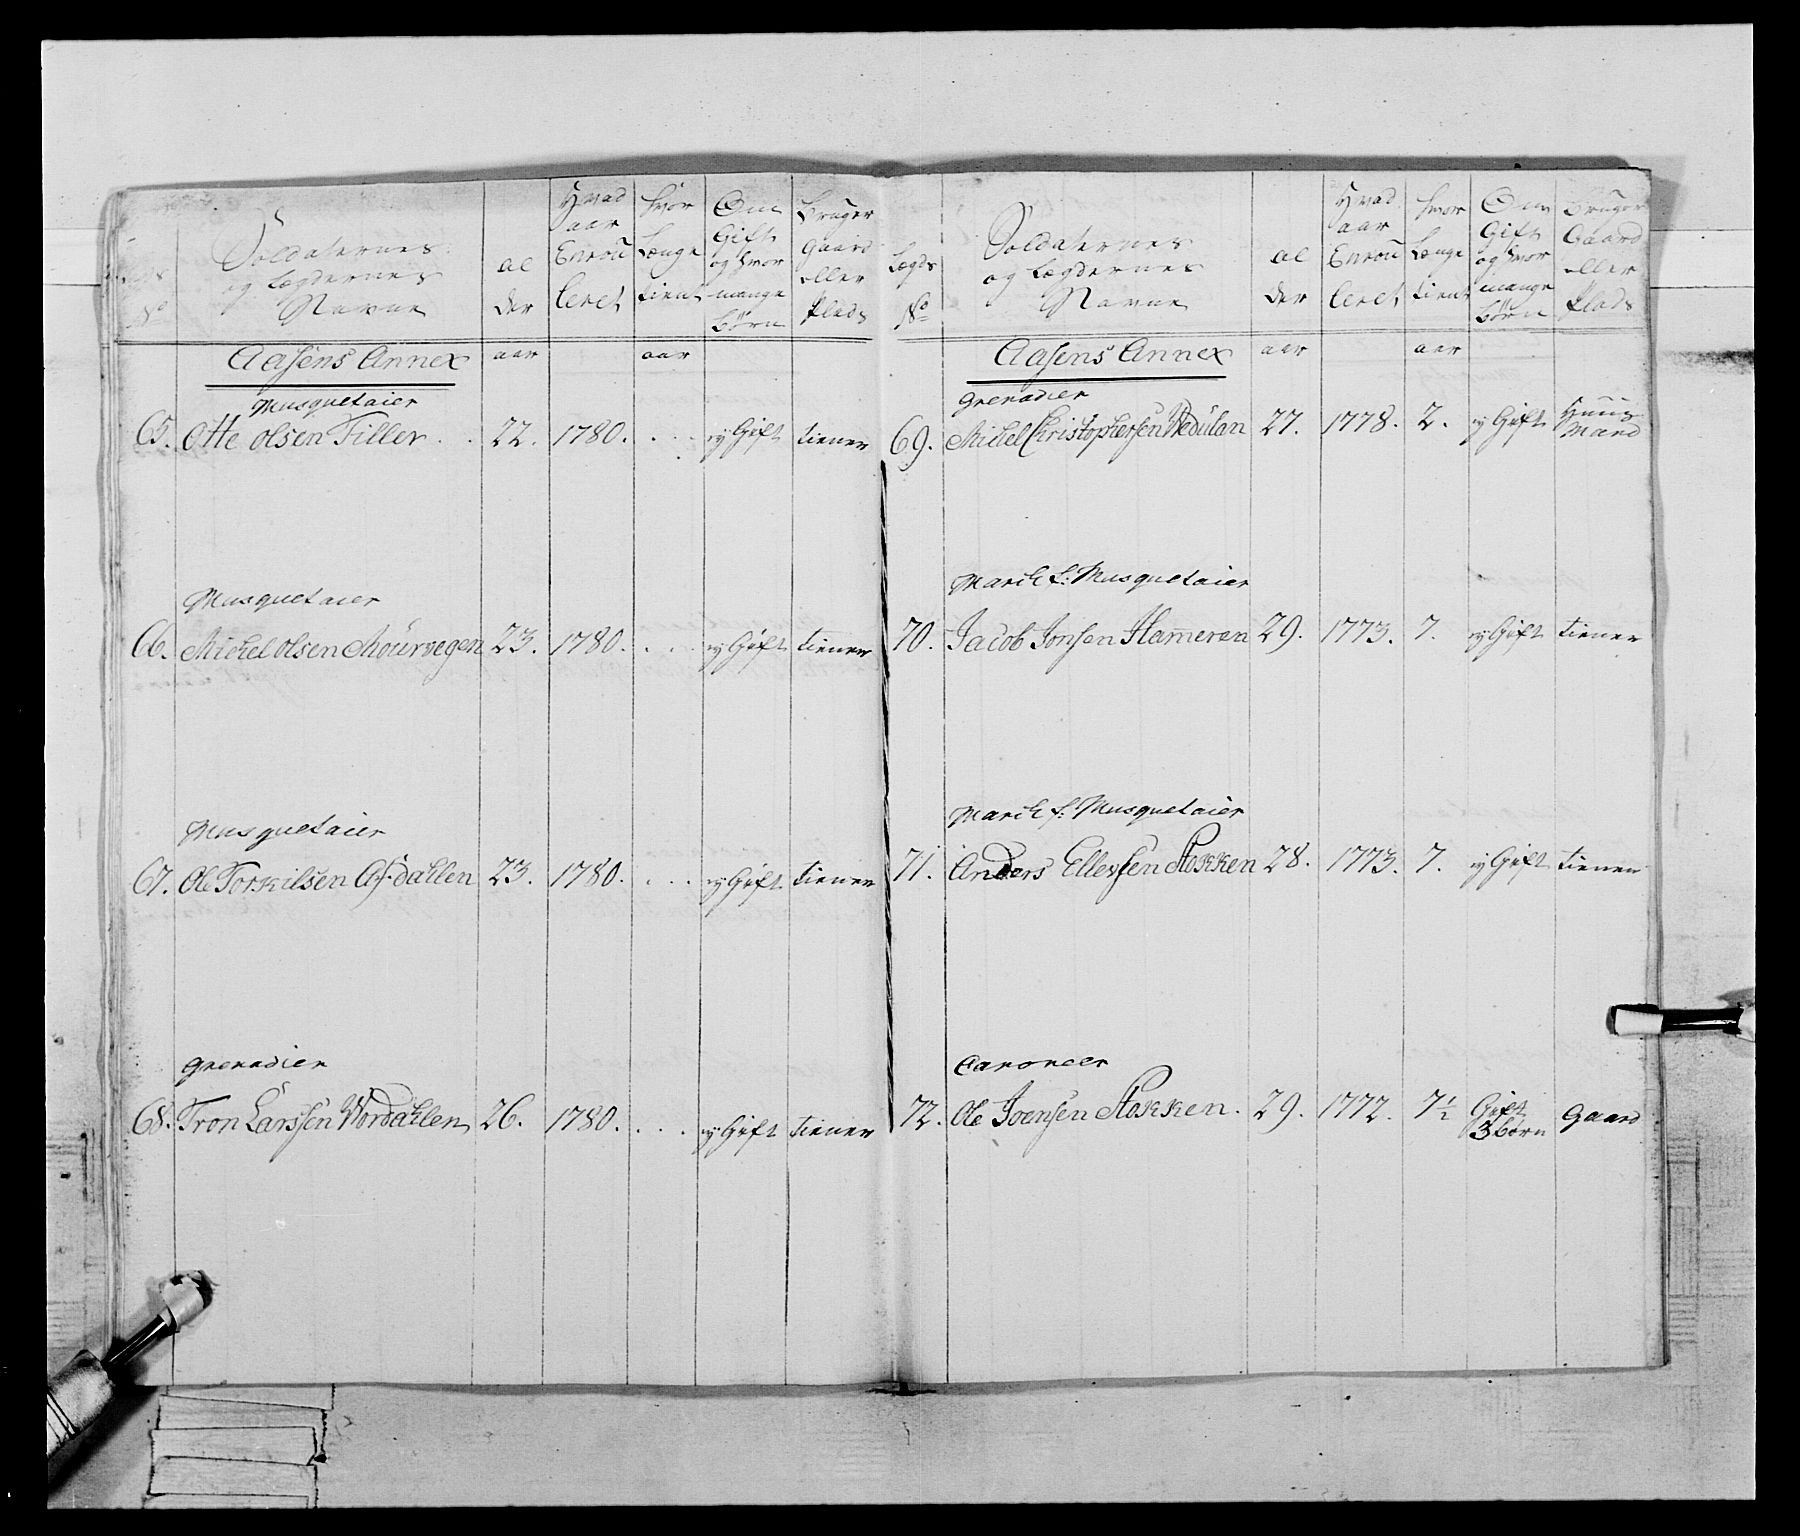 Lægds No | Soldaternes og Lægdernes Navne | alder | Hvad aar Enroulleret | hvor Længe tient | Om Gift og hvor mange börn | Bruger Gaard eller Plads
Aasens Annex | aar | aar
Musquetaier
65. Otte olsen Filler . . 22. 1780. . . . ej Gift tiener
Musquetaier
66. Michel olsen Mourvegen 23. 1780. . . . ej Gift tiener
Musquetaier
67. Ole Torkilsen Asdahlen 23. 1780. . . . ej Gift tiener
Grenadier
68. Tron Larssen Wordahlen 26. 1780. . . . ej Gift tiener
Lægds No | Soldaternes og Lægdernes Navne | alder | Hvad aar Enroulleret | hvor Længe tient | Om Gift og hvor mange börn | Bruger Gaard eller Plads
Aasens Annex | aar | aar
Grenadier
69. Michel Christophersen Wedulan 27. 1778. 2. ej Gift Huus Mand
March f: Musquetaier
70. Jacob Jonsen Hameren 29. 1773. 7. ej Gift tiener
March f: Musquetaier
71. Anders Ellevsen Stokken 28. 1773. 7. ej Gift tiener
Canoneer
72. Ole Joensen Stokken. 29. 1772. 7½ Gift 3 börn Gaard